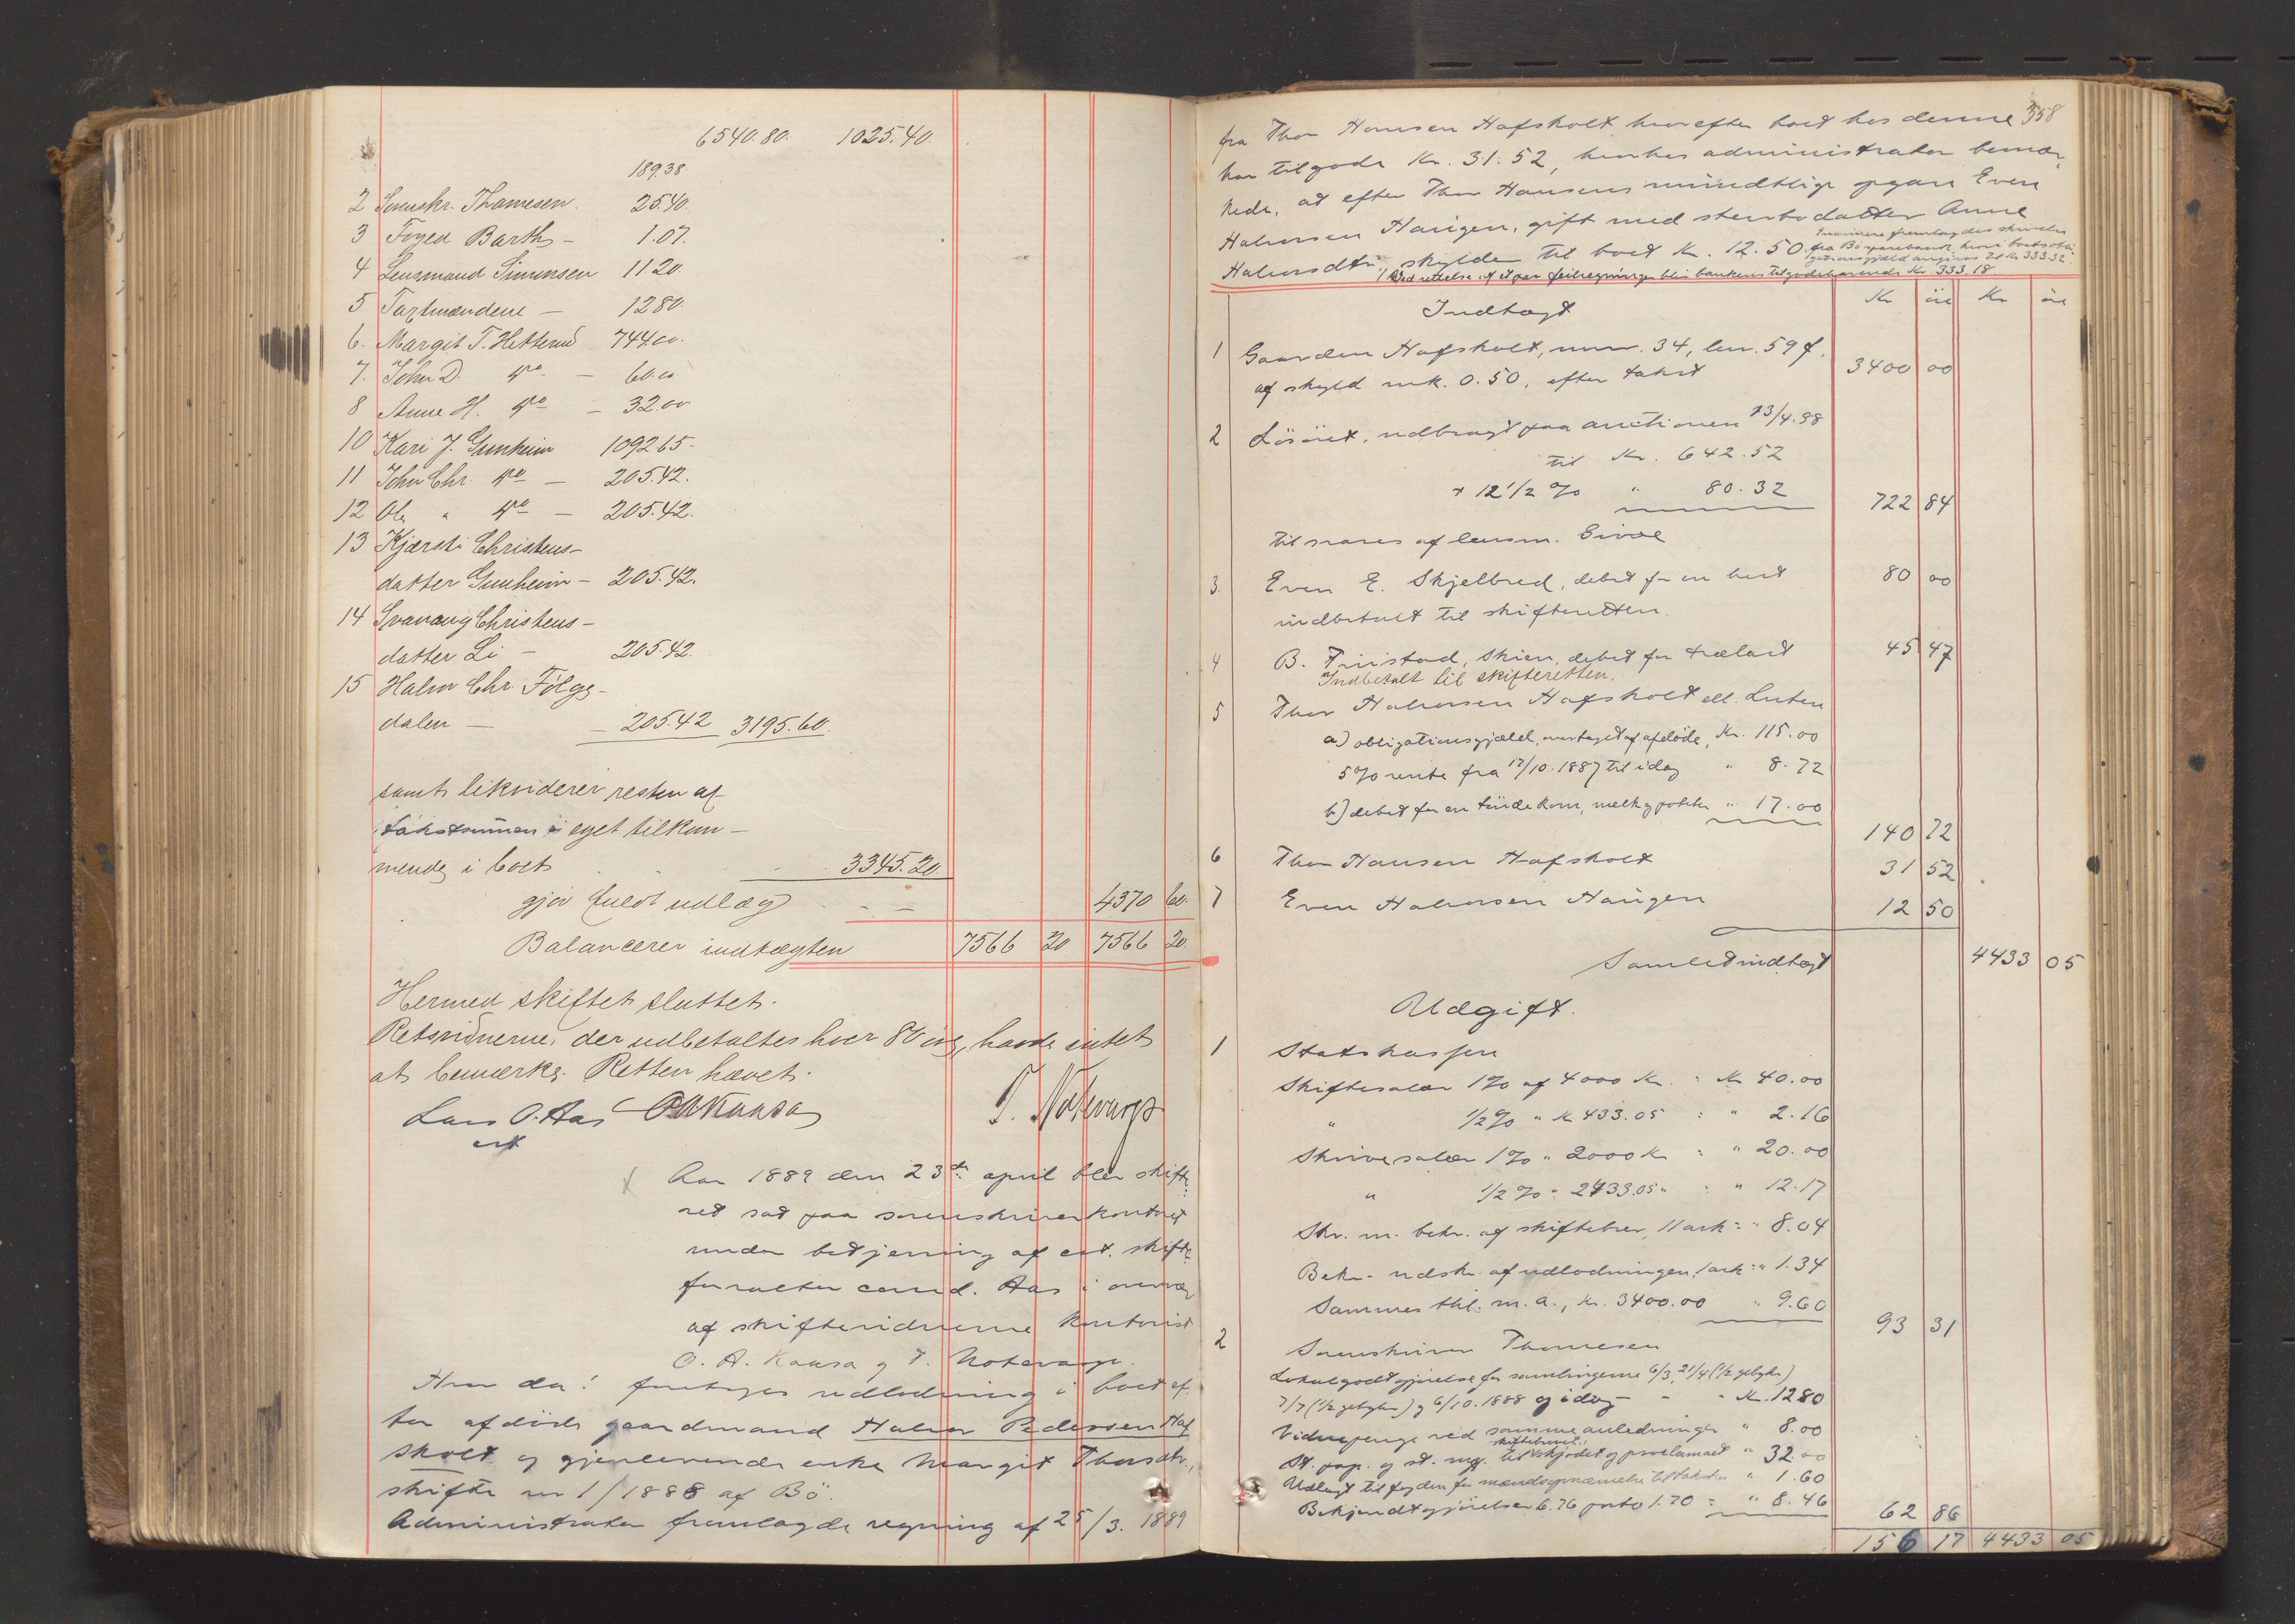 6540.80. 1025.40.
189.38.
2 Sorenskr. Thomesen. 25.40.
3 Foged Barth – 1.07.
4 Lensmand Simonsen 11.20.
5 Taxtmændene – 12.80.
6. Margit T. Hetterud 744.00.
7. John D. do – 60.00
8 Anne H. do – 32.00
10 Kari J. Gunheim 1092.65.
11 John Chr. do – 205.42.
12 Ole " do – 205.42.
13 Kjærsti Christens-
datter Gunheim – 205.42.
14 Svanaug Christens-
datter Li – 205.42.
15 Halvor Chr. Følge-
dalen – – 205.42 3195.60.
samt likviderer resten af
takstsummen i eget tilkom-
mende i boet 3345.20
gjør fuldt udlæg – – 4370 60.
Balancerer indtægten 7566 20 7566 20.
Hermed skiftet sluttet.
Retsvidnerne, der udbetaltes hver 80 øre, havde intet
at bemærke. Retten hævet.
Lars O. Aas OAKaasa T. Notevarp
cst
Aar 1889 den 23de april blev skifte-
ret sat paa sorenskriverkontoret
under betjening af cst. skifte-
forvalter cand. Aas i overvær
af skiftevidnerne kontorist
O. A. Kaasa og T. Notevarp.
Hvor da: foretoges udlodning i boet ef-
ter afdøde gaardmand Halvor Pedersen Haf
skolt og gjenlevende enke Margit Thorsdtr.,
skifte no 1/1888 af Bö.
Administrator fremlagde regning af 25/3. 1889
358
fra Thor Hansen Hafskolt hvorefter boet hos denne
har tilgode Kr. 31.52, hvorhos administrator bemær-
kede, at efter Thor Hansens mundtlige opgave Even
Halvorsen Haugen, gift med sterbodatter Anne
Halvorsdtr., skylder til boet Kr. 12.50.
Endvidere fremlagdes skrivelse
fra Bö sparebank, hvori boets obli-
gationsgjæld angives til Kr 333.32
1/ Ved rettelse af et par feilregninger blir bankens tilgodehavende Kr 333.18
Indtægt Kr öre Kr öre
1 Gaarden Hafskolt, mnr. 34, lnr. 59 f,
af skyld mk. 0.50, efter takst 3400 00
2 Løsöret, udbragt paa auctionen 13/4.88
til Kr. 642.52
+ 12 1/2 % " 80.32 722 84
til svares af lensm. Sivle
3. Even E. Skjelbred, debet for en hest 80 00
indbetalt til skifteretten.
4 B. Friistad, Skien, debet for trælast 45 47
Indbetalt til skifteretten.
5 Thor Halvorsen Hafskolt ell. Luten
a) obligationsgjæld, overtaget af afdöde, Kr. 115.00
5 % rente fra 12/10.1887 til idag " 8.72
b) debet for en tönde korn, melk og poteter " 17.00
140 72
6 Thor Hansen Hafskolt 31 52
7 Even Halvorsen Haugen 12 50
Samlet indtægt 4433 05
Udgift.
1 Statskassen
Skiftesalær 1 % af 4000 Kr. = Kr 40.00
" 1/2 % " Kr 433.05 = " 2.16
Skrivesalær 1 % " 2000 Kr = " 20.00
" 1/2 % " 2433.05 " = " 12.17
Skr. m. bekr. af skiftebrev, 11 ark = " 8.04
Bekr. udskr. af udlodningen, 1 ark = " 1.34
Sammes thl. m. a., Kr. 3400.00 " 9.60
93 31
2 Sorenskriver Thomesen
Lokalgodtgjörelse for samlingerne 6/3, 21/4 (1/2 gebyhr)
7/7 (1/2 gebyhr) og 6/10.1888 og idag – – Kr. 12.80
Vidnepenge ved samme anledninger " 8.00
skiftebrevet
St. pap. og st. mrg. til skjödet og proclamaet " 32.00
Udlagt til fogden for mændsopnævnelse til takster " 1.60
Bekjendtgjörelser 6.76 porto 1.70 = " 8.46
62 86
156 17 4433 05